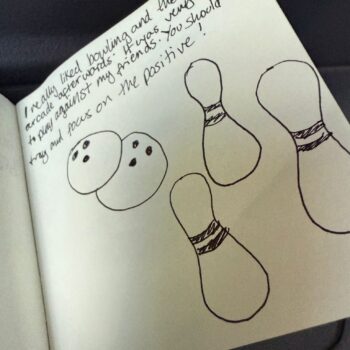 I really liked bowling and the
arcade afterwords. It was very
to play against my friends. You should
try and focus on the positive!